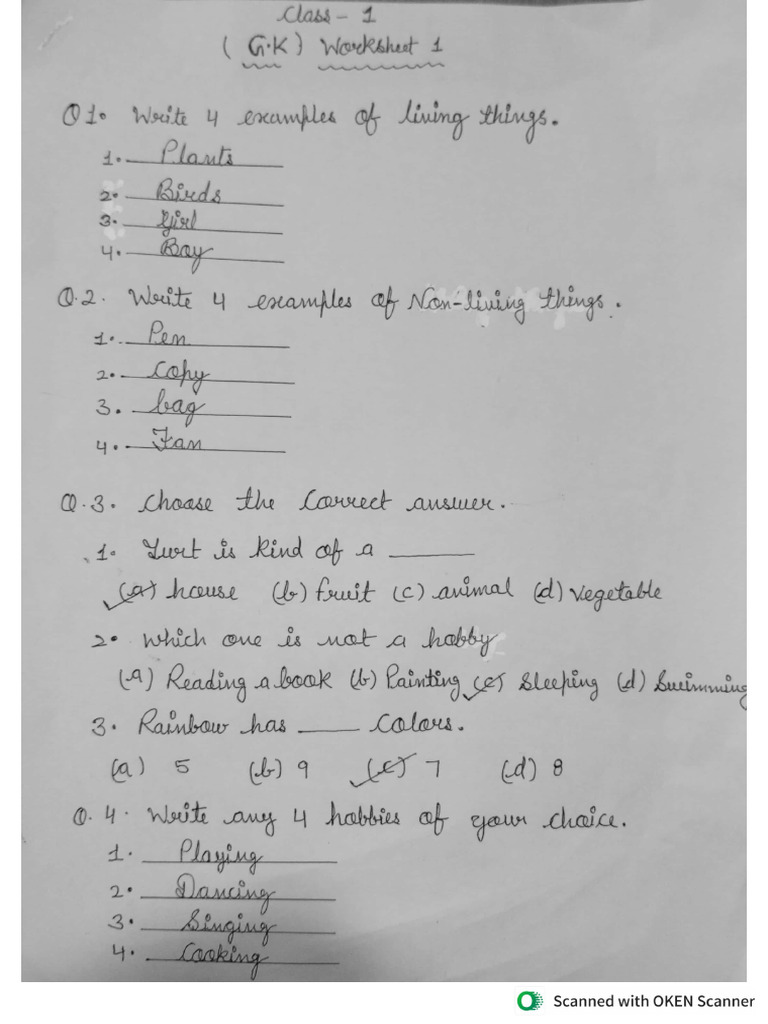 Class - 1
( G.K ) Worksheet 1
Q1. Write 4 examples of living things.
1. Plants
2. Birds
3. Girl
4. Boy
Q.2. Write 4 examples of Non-living things.
1. Pen
2. Copy
3. bag
4. Fan
Q.3. Choose the Correct answer.
1. Yurt is kind of a ______
(a) house (b) fruit (c) animal (d) vegetable
2. Which one is not a hobby
(a) Reading a book (b) Painting (c) Sleeping (d) Swimming
3. Rainbow has ____ Colors.
(a) 5 (b) 9 (c) 7 (d) 8
Q.4. Write any 4 hobbies of your choice.
1. Playing
2. Dancing
3. Singing
4. Cooking
Scanned with OKEN Scanner